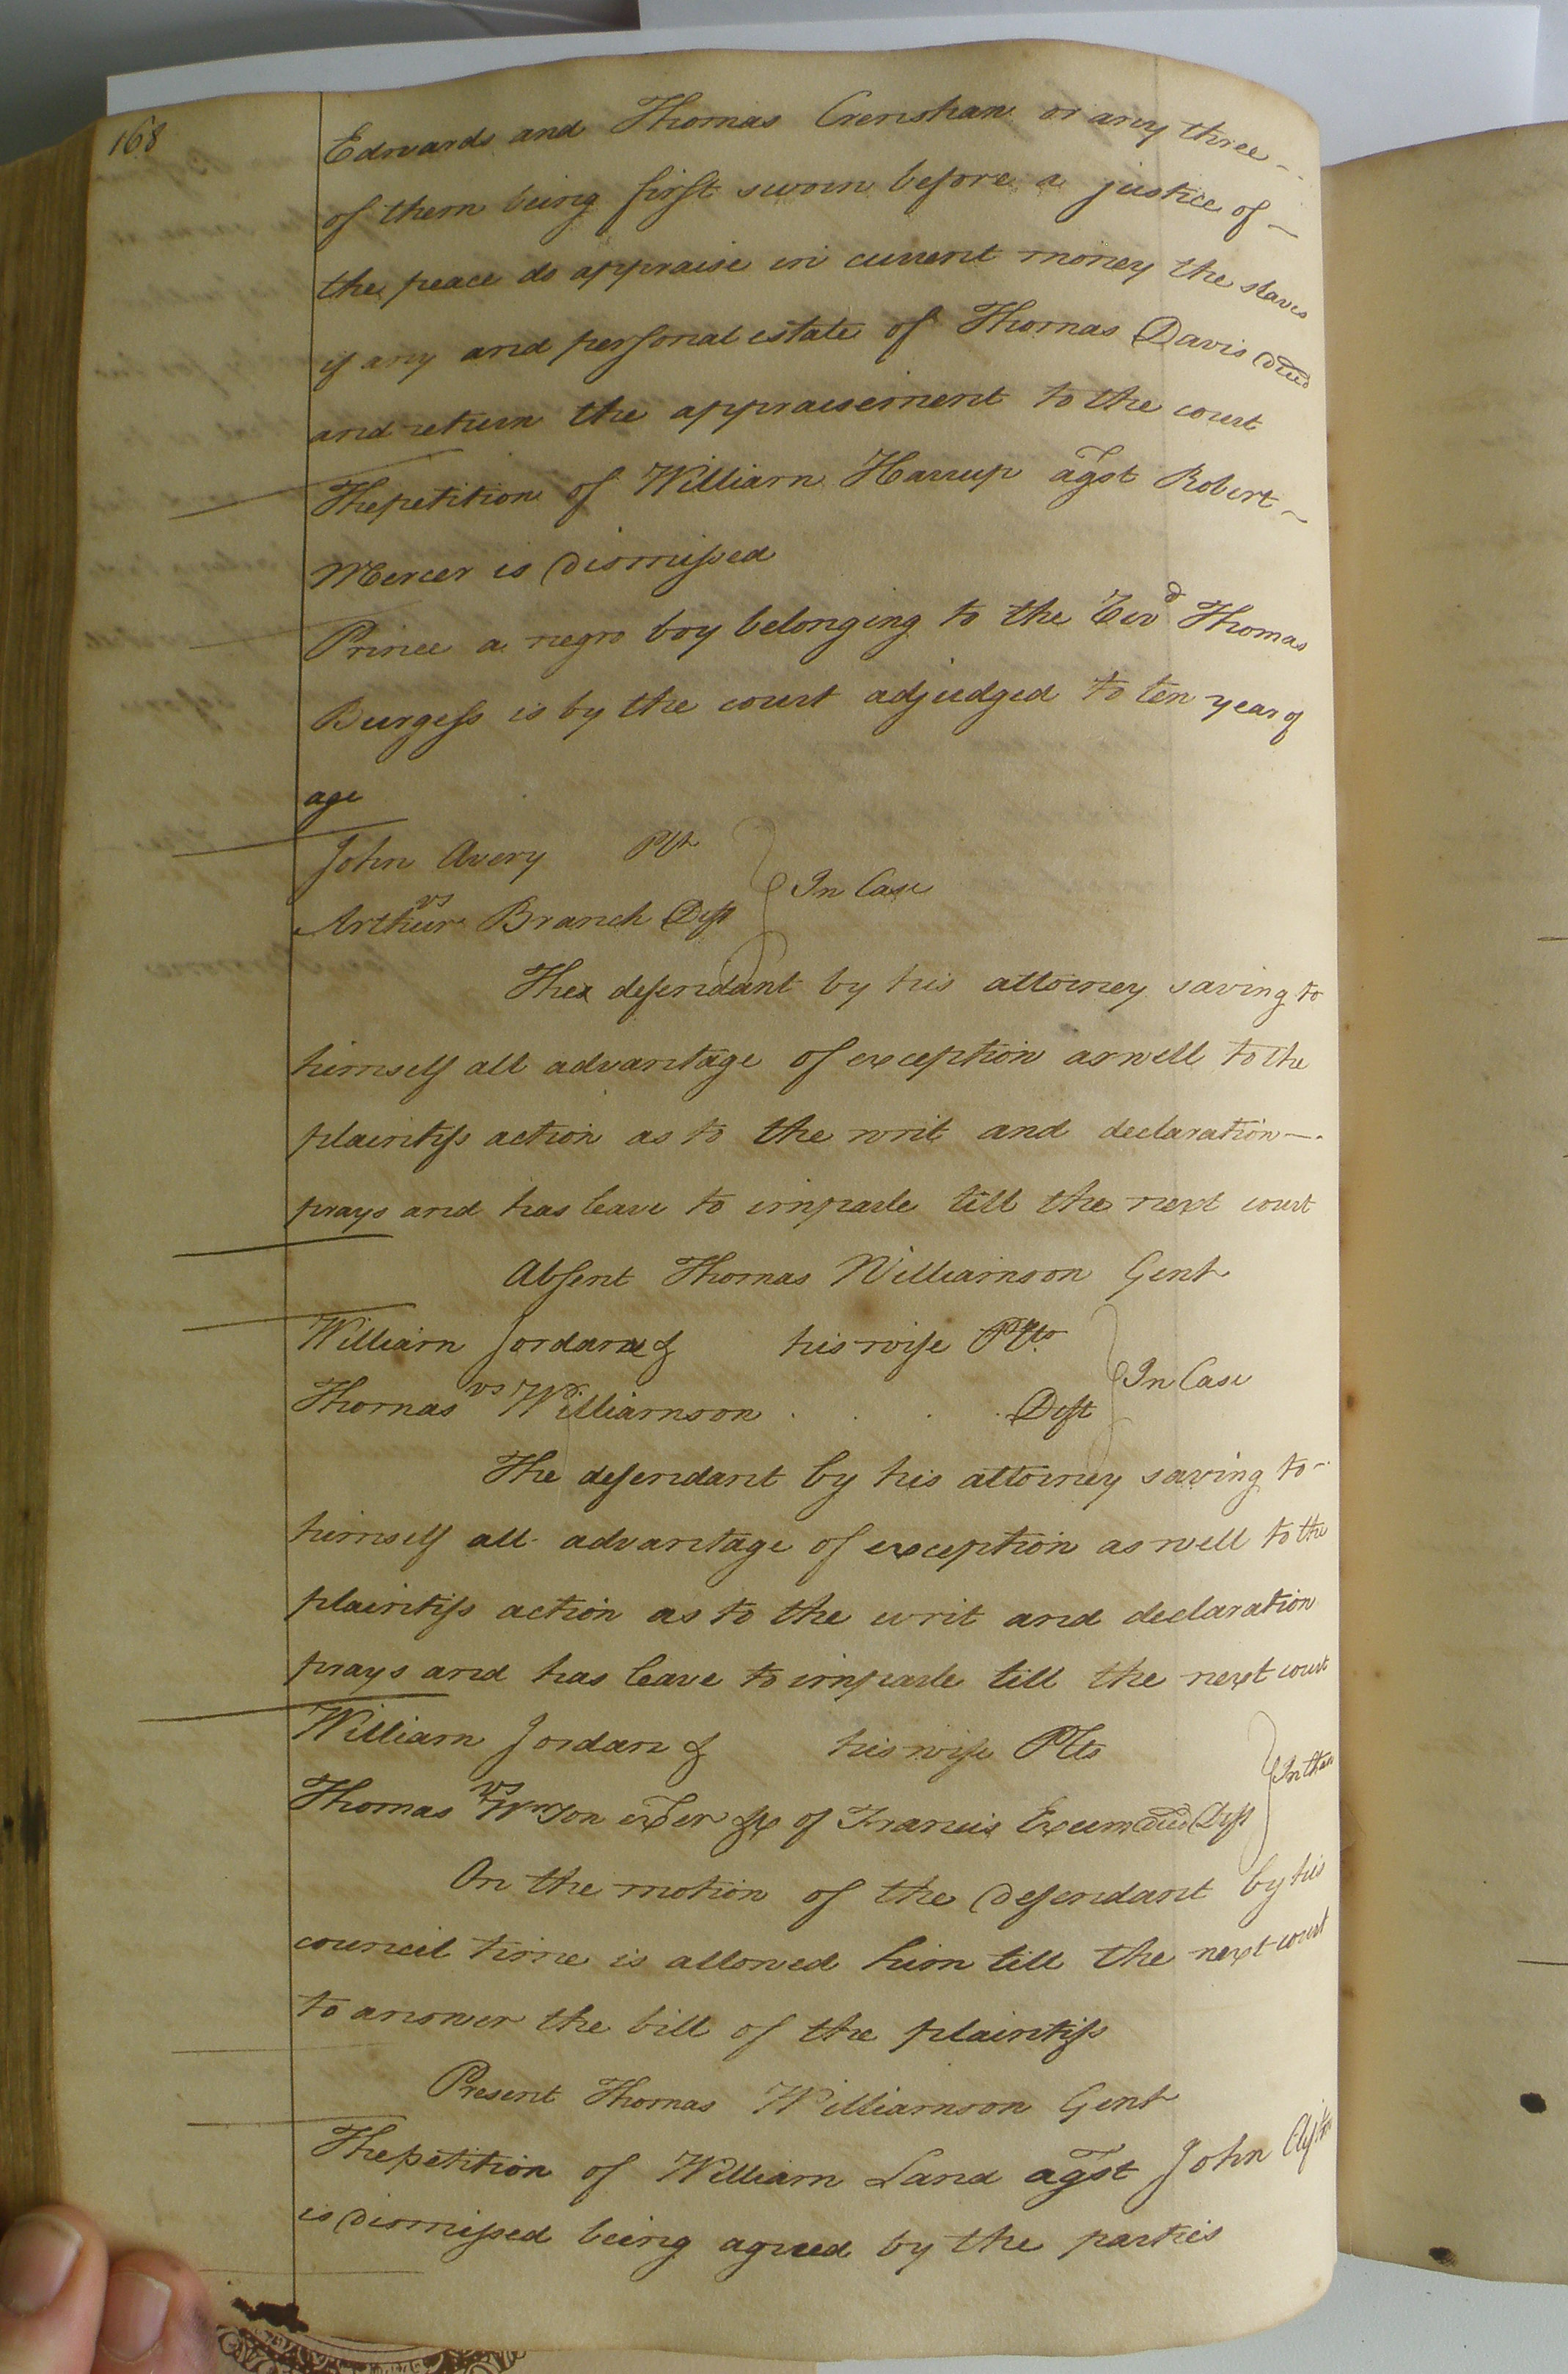 168
Edwards and Thomas Crenshaw or any three
of them being first sworn before a justice of
the peace do appraise in current money the slaves
if any and personal estate of Thomas Davis decd
and return the appraisement to the court
The petition of William Harrup agst Robert
Mercer is dismissed
Prince a negro boy belonging to the Revd Thomas
Burgess is by the court adjudged to ten year of
age
John Avery Plt
vs In Case
Arthur Branch Deft
The defendant by his attorney saving to
himself all advantage of exception as well to the
plaintiffs action as to the writ and declaration
prays and has leave to imparle till the next court
Absent Thomas Williamson Gent
William Jordan & his wife Plts
vs In Case
Thomas Williamson Deft
The defendant by his attorney saving to
himself all advantage of exception as well to the
plaintiffs action as to the writ and declaration
prays and has leave to imparle till the next court
William Jordan & his wife Plts
vs
Thomas Wmson exer &c of Francis Exum decd Deft
On the motion of the defendant by his
council time is allowed him till the next court
to answer the bill of the plaintiffs
Present Thomas Williamson Gent
The petition of William Land agst John
is dismissed being agreed by the parties